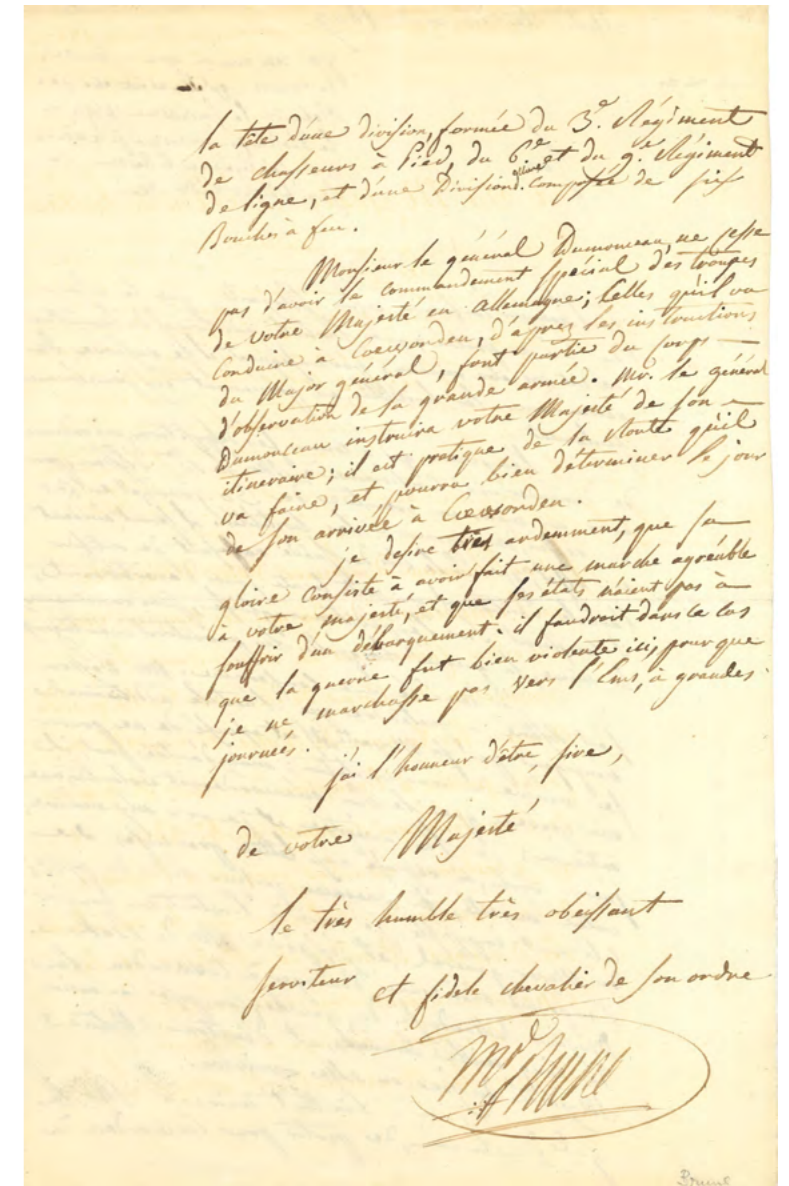 la tête d'une division, formée du 3e. Régiment
de chasseurs à Pied, du 6e et du 9e. Régiment
de ligne, et d'une Division d'. composée de six
Bouches à feu.
Monsieur le général Dumonceau, ne cesse
pas d'avoir le commandement spécial des troupes
de votre Majesté en allemagne; Celles qu'il va
Conduire à Coeworden, d'aprez les instructions
du Major général, font partie du Corps —
d'observation de la grande armée. Mr. le général
Dumonceau instruira votre Majesté de son —
itineraire; il est pratique de la Route qu'il
va faire, et pourra bien déterminer le jour
de son arrivée à Coeworden.
je desire très ardemment, que sa
gloire Consiste à avoir fait une marche agréable
à votre majesté, et que ses états n'aient pas à
souffrir d'un débarquement. il faudroit dans ce cas
que la guerre fut bien violente ici, pour que
je ne marchasse pas vers l'Ems, à grandes
journées.
j'ai l'honneur d'être, sire,
de votre Majesté
le très humble très obéissant
serviteur et fidele chevalier de son ordre
Mal Brune
Brune